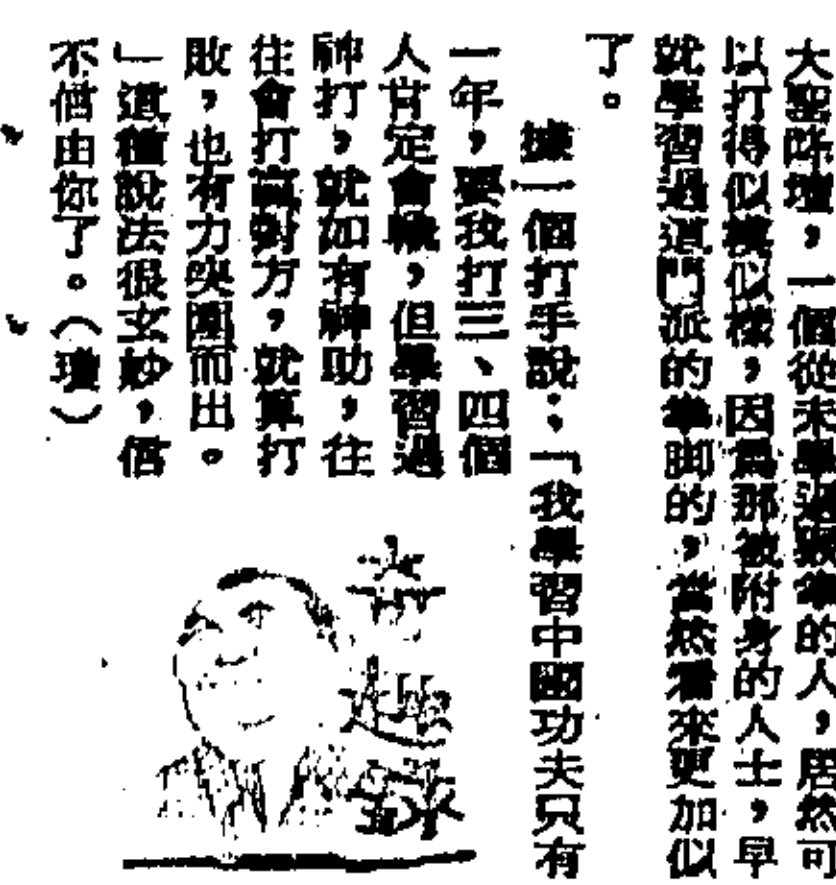 大聖降壇，一個從未學過猴拳的人，居然可
以打得似模似樣，因爲那被附身的人士，早
就學習過這門派的拳脚的，當然看來更加似
了。
據一個打手說：「我學習中國功夫只有
一年，要我打三、四個
人肯定會輸，但學習過
神打，就如有神助，往
往會打贏對方，就算打
敗，也有力突圍而出。
」這種說法很玄妙，信
不信由你了。（瓊）